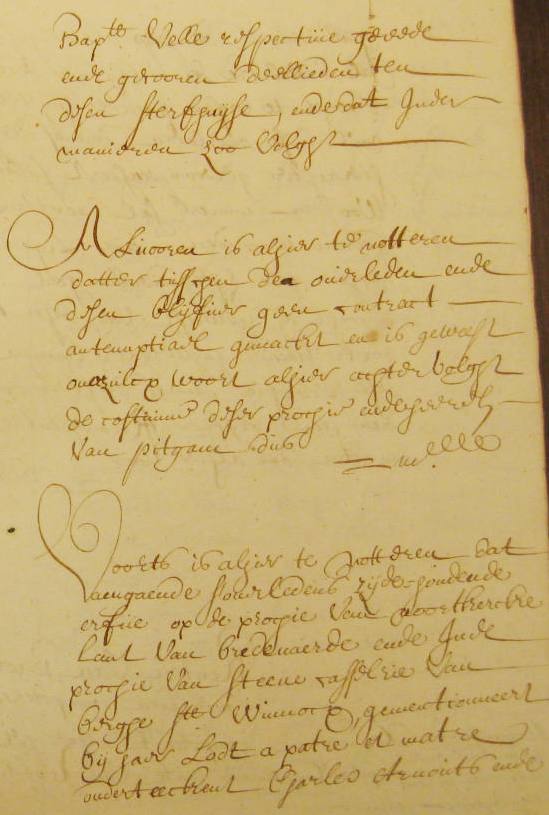 Bap.te Velle respective geerde
ende gecooren deellieden ten
desen sterfhuijse, ende dat Inder
manieren zoo Volght
Alvooren is alhier te notteren
datter tusschen den overleden ende
desen blijfver geen contract
antenuptiael gemaeckt en is geweest
overzulcx wort alhier achtervolght
de costume deser prochie ende heerelt
Van pitgam dus
Voorts is alhier te notteren dat
aengaende soverledens zijde houdende
erfve op de prochie Van noortkercke
Lant Van bredenaerde ende Inde
prochie Van steene casselrie Van
berghe Ste Winnocx, gementionneert
bij haer Lodt a patre et matre
onderteeckent Charles Arnouts ende